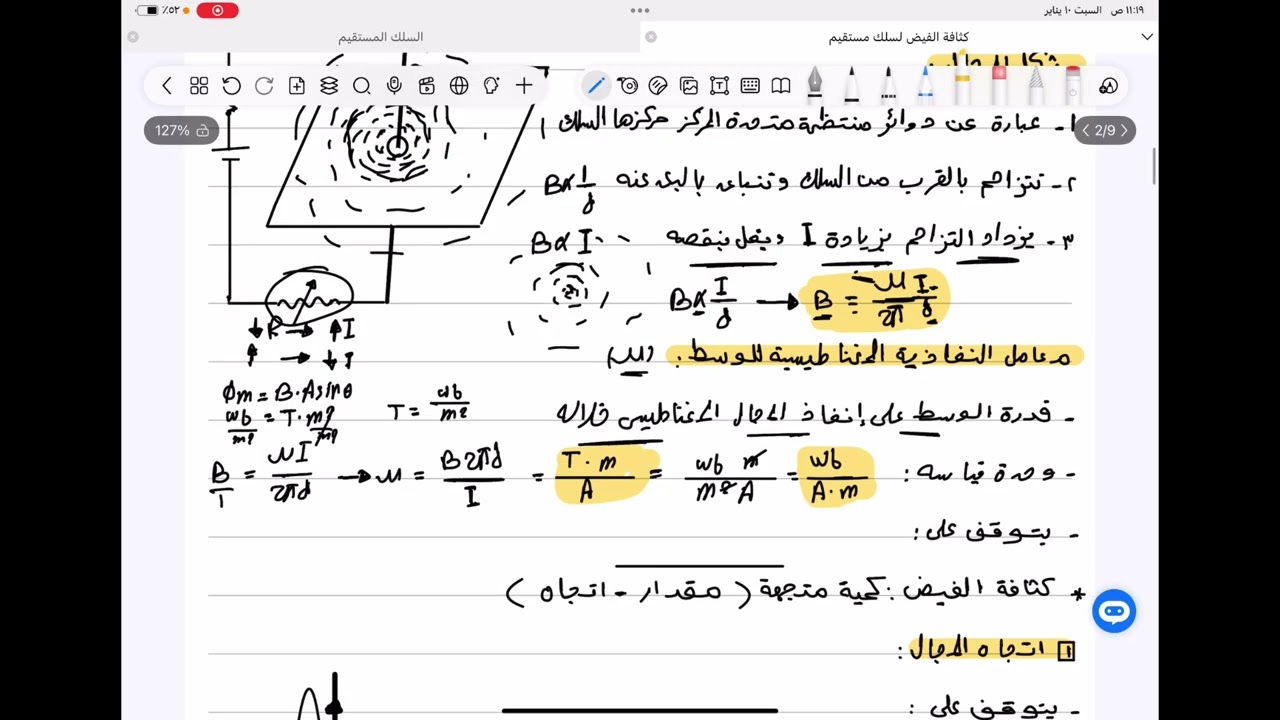 ١١:١٩ ص السبت ١٠ يناير
٪٥٢
كثافة الفيض لسلك مستقيم
السلك المستقيم
127%
2/9
شكل المجال:
١- عبارة عن دوائر منتظمة متحدة المركز مركزها السلك
٢- تتزاحم بالقرب من السلك وتتباعد بالبعد عنه B∝1/d
٣- يزداد التزاحم بزيادة I ويقل بنقصه B∝I
B∝I/d → B = μI/2πd
↓R → ↑I
↑ → ↓I
معامل النفاذية المغناطيسية للوسط: (μ)
- قدرة الوسط على إنفاذ المجال المغناطيسي خلاله
φm = B·A sinθ
wb/m² = T·m²/m²
T = wb/m²
- وحدة قياسه:
B/T = μI/2πd → μ = B2πd/I = T·m/A = wb m/m² A = wb/A·m
- يتوقف على:
* كثافة الفيض: كمية متجهة (مقدار - اتجاه)
1 اتجاه المجال:
- يتوقف على: